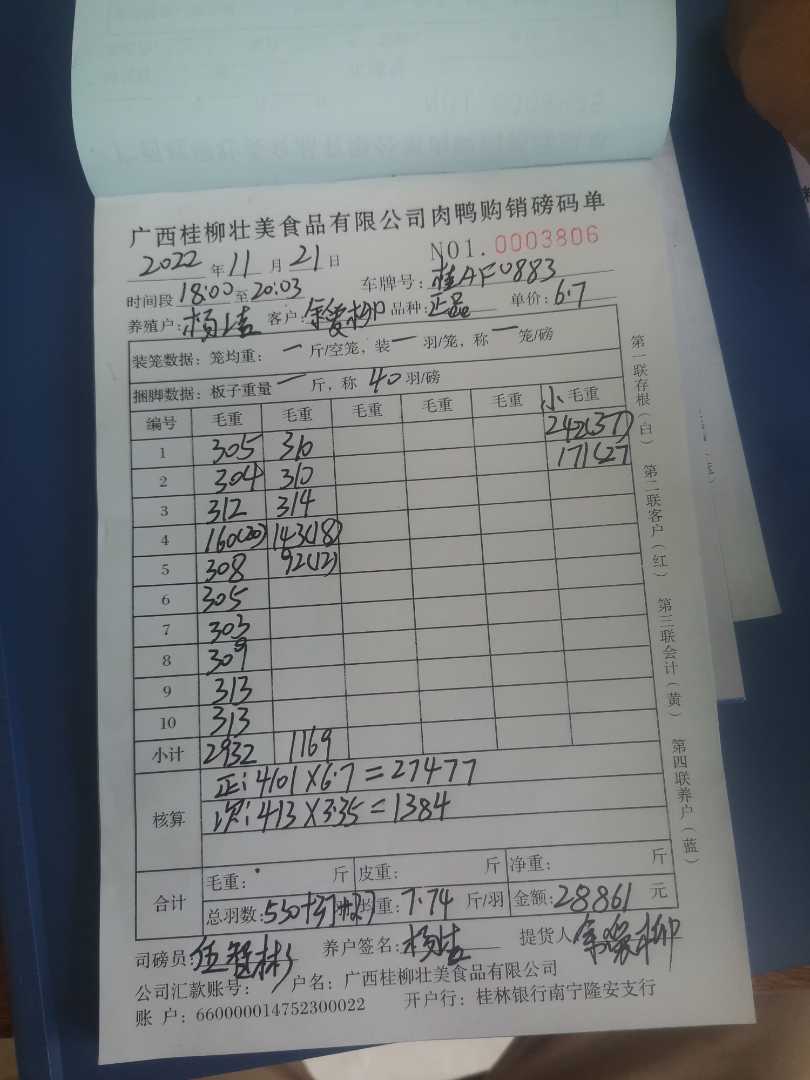 广西桂柳壮美食品有限公司肉鸭购销磅码单
2022年11月21日 NO1.0003806
时间段18:00至20:03 车牌号:桂AF0883
养殖户:杨洁 客户:余爱柳 品种:正品 单价:6.7
装笼数据:笼均重:一斤/空笼,装一羽/笼,称一笼/磅
捆脚数据:板子重量一斤,称40羽/磅
编号 毛重 毛重 毛重 毛重 毛重 小毛重
1 305 310 242(37)
2 304 310 171(27
3 312 314
4 160(20) 143(18)
5 308 92(12)
6 305
7 303
8 309
9 313
10 313
小计 2932 1169
核算 正:4101×6.7=27477
次:413×3.35=1384
合计 毛重: 斤 皮重: 斤 净重: 斤
总羽数:530+37+27 均重:7.74斤/羽 金额:28861元
司磅员: 养户签名:杨洁 提货人余爱柳
公司汇款账号: 户名:广西桂柳壮美食品有限公司
账户:660000014752300022 开户行:桂林银行南宁隆安支行
第一联存根(白) 第二联客户(红) 第三联会计(黄) 第四联养户(蓝)